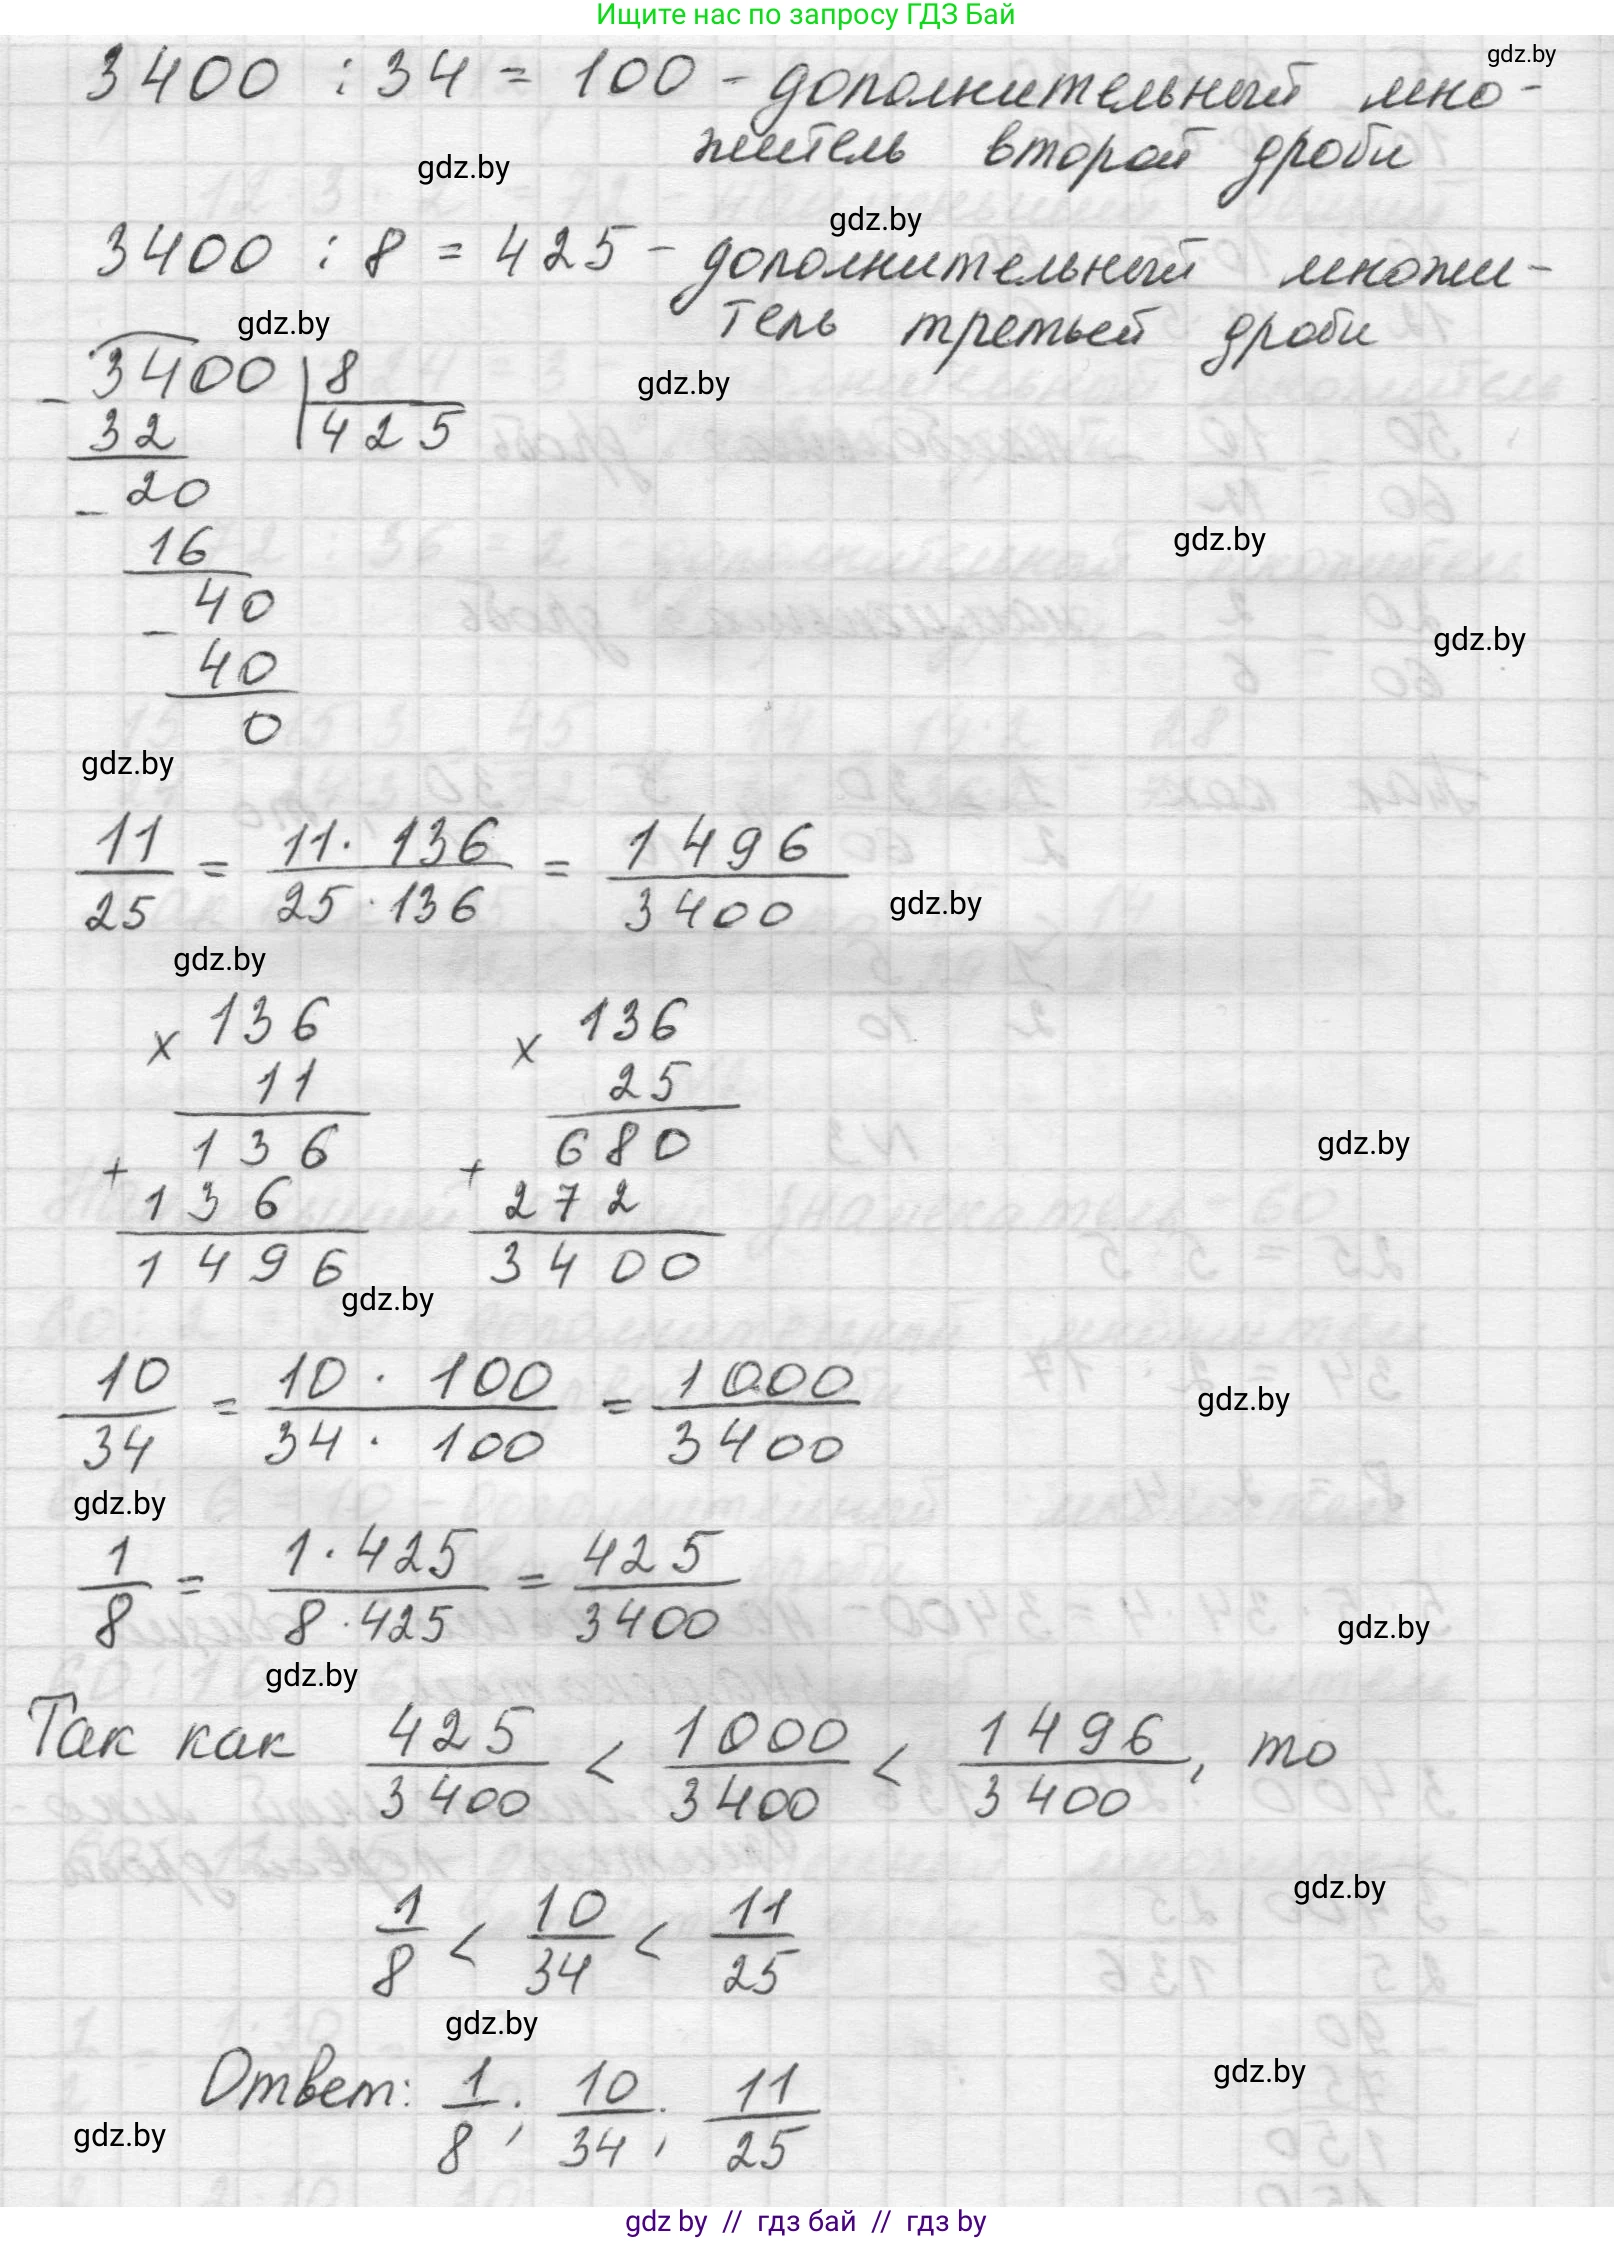 Ищите нас по запросу ГДЗ Бай
gdz.by
3400 : 34 = 100 - дополнительный мно-
житель второй дроби
gdz.by
gdz.by
3400 : 8 = 425 - дополнительный множи-
тель третьей дроби
gdz.by
gdz.by
- 3400 | 8
32 425
- 20
16
gdz.by
- 40
gdz.by
40
0
gdz.by
11/25 = 11 · 136/25 · 136 = 1496/3400
gdz.by
gdz.by
× 136 × 136
11 25
gdz.by
+ 136 + 680
136 272
1496 3400
gdz.by
10/34 = 10 · 100/34 · 100 = 1000/3400
gdz.by
gdz.by
1/8 = 1 · 425/8 · 425 = 425/3400
gdz.by
gdz.by
Так как 425/3400 < 1000/3400 < 1496/3400, то
gdz.by
1/8 < 10/34 < 11/25
gdz.by
gdz.by
Ответ: 1/8; 10/34; 11/25
gdz.by
gdz by // гдз бай // гдз by